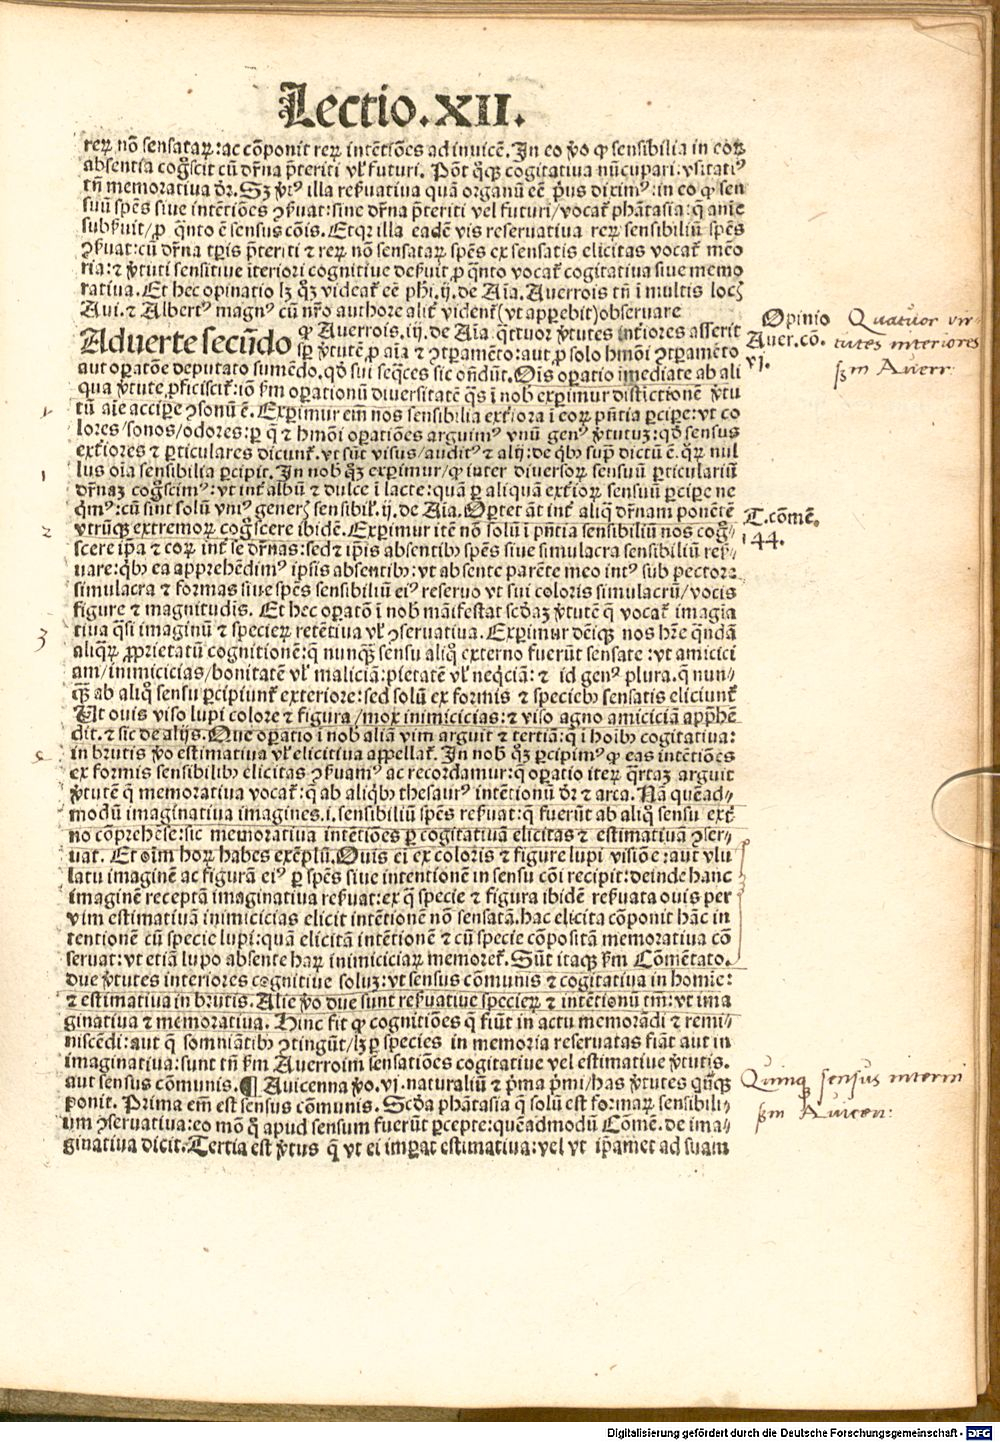 Lectio.XII.
rerꝝ nō sensatarꝝ:ac cōponit rerꝝ intētiōes ad inuicē. In eo ꝟo ꝙ sensibilia in eorꝝ
absentia cogscit cū dr̄na p̄teriti vl̓ futuri. Pōt qq̄ cogitatiua nūcupari: vsitati⁹
tn̄ memoratiua dr̄. Sꝫ ꝟt⁹ illa reẜuatiua quā organū eē p̄us diximꝰ: in eo ꝙ sen
suū sp̄es siue intētiōes ꝯẜuat: sine dr̄na p̄teriti vel futuri/vocat̄ phātasia: q̄ anīe
subẜuit/ꝓ q̄nto ē sensus cōis. Etqꝫ illa eadē vis reseruatiua rerꝝ sensibiliū sp̄es
ꝯẜuat: cū dr̄na tp̄is p̄teriti ⁊ rerꝝ nō sensatarꝝ sp̄es ex sensatis elicitas vocat̄ mēo
ria: ⁊ ꝟtuti sensitiue īteriori cognitiue deẜuit ꝓ q̄nto vocat̄ cogitatiua siue memo
ratiua. Et hec opinatio lꝫ qꝫ videat̄ eē phi. ij. de Aīa. Auerrois tn̄ ī multis locꝭ
Aui. ⁊ Albertꝰ magnꝰ cū nr̄o authore alit̄ vident̄ (vt apꝑebit) obseruare
Aduerte secūdo ꝙ Auerrois. iij. de Aīa q̄ttuor ꝟtutes int̄iores asserit
sꝑ ꝟtutē ꝓ aīa ⁊ ꝯtꝑamēto: aut ꝓ solo hmōi ꝯtꝑamēto
aut oꝑatōe deputato sumēdo. qd̄ sui seq̄ces sic ondūt. Oīs oꝑatio īmediate ab ali
qua ꝟtute ꝓficiscit̄: iō ẜm oꝑationū diuersitatē q̄s ī nob̄ exꝑimur distīctionē ꝟtu
tū aīe accipe ꝯsonū ē. Exꝑimur em̄ nos sensibilia ext̄iora ī eorꝝ pn̄tia ꝑcipe: vt co
lores/sonos/odores: ꝑ q̄ ⁊ hmōi oꝑatiōes arguimꝰ vnū genꝰ ꝟtutuꝫ: qd̄ sensus
ext̄iores ⁊ ꝑticulares dicunt̄. vt sūt visus/auditꝰ ⁊ alij: de qbꝰ supꝰ dictū ē. qꝝ nul
lus oīa sensibilia ꝑcipit. In nob̄ qꝫ exꝑimur/ꝙ inter diuersorꝝ sensuū ꝑticulariū
dr̄naꝫ cogscimꝰ: vt int̄ albū ⁊ dulce ī lacte: quam ꝑ aliquā ext̄iorꝝ sensuū ꝑcipe ne
qmꝰ: cū sint solū vniꝰ generꝭ sensibiꝭ. ij. de Aīa. Oꝑtet āt int̄ aliq̄ dr̄nam ponētē
vtrūqꝫ extremorꝝ cogscere ibidē. Exꝑimur itē nō solū ī pn̄tia sensibiliū nos cog-
scere ip̄a ⁊ eorꝝ int̄ se dr̄nas: sed ⁊ ip̄is absentibꝰ sp̄es siue simulacra sensibiliū reẜ-
uare: qbꝰ ea apprehēdimꝰ ipsis absentibꝰ: vt absente parēte meo intꝰ sub pectore
simulacra ⁊ formas siue sp̄es sensibiliū eiꝰ reseruo vt sui coloris simulacrū/vocis
figure ⁊ magnitudīs. Et hec oꝑatō ī nob̄ māifestat scd̄aꝫ ꝟtutē q̄ vocat̄ imagīa
tiua q̄si imaginū ⁊ specierꝝ retētiua vl̓ ꝯseruatiua. Exꝑimur dēiqꝫ nos hr̄e qndā
aliqꝝ ꝓprietatū cognitionē: q̄ nunq̄ꝫ sensu aliq̄ externo fuerūt sensate: vt amicici
am/inimicicias/bonitatē vl̓ maliciā: pietatē vl̓ neqciā: ⁊ id genꝰ plura. q̄ nun-
q̄ꝫ ab aliq̄ sensu ꝑcipiunt̄ exteriore: sed solū ex formis ⁊ speciebꝰ sensatis eliciunt̄
Ut ouis viso lupi colore ⁊ figura/mox inimicicias: ⁊ viso agno amiciciā app̄hē
dit. ⁊ sic de alijs. Que oꝑatio ī nob̄ aliā vim arguit ⁊ tertiā: q̄ ī hoībꝰ cogitatiua:
in brutis ꝟo estimatiua vl̓ elicitiua appellat̄. In nob̄ qꝫ ꝑcipimꝰ ꝙ eas intētiōes
ex formis sensibilibꝰ elicitas ꝯẜuamꝰ ac recordamur: q̄ oꝑatio iterꝝ q̄rtaꝫ arguit
ꝟtutē q̄ memoratiua vocat̄: q̄ ab aliqbꝰ thesaurꝰ intētionū dr̄ ⁊ arca. Nā quēad-
modū imaginatiua imagines. i. sensibiliū sp̄es reẜuat: q̄ fuerūt ab aliq̄ sensu ext̄
no cōprehēse: sic memoratiua intētiōes ꝑ cogitatiuā elicitas ⁊ estimatiuā ꝯser-
uat. Et oīm horꝝ habes exēplū. Ouis ei ex coloris ⁊ figure lupi visiōe: aut vlu
latu imaginē ac figurā eiꝰ ꝑ sp̄es siue intentionē in sensu cōi recipit: deinde hanc
imaginē receptā imaginatiua reẜuat: ex q̄ specie ⁊ figura ibidē reẜuata ouis per
vim estimatiuā inimicicias elicit intētionē nō sensatā. hac elicita cōponit hāc in
tentionē cū specie lupi: quā elicitā intētionē ⁊ cū specie cōpositā memoratiua cō
seruat: vt etiā lupo absente harꝝ inimiciciarꝝ memoret̄. Sūt itaqꝫ ẜm Cōmētato.
due ꝟtutes interiores cognitiue soluꝫ: vt sensus cōmunis ⁊ cogitatiua in homīe:
⁊ estimatiua in brutis. Alie ꝟo due sunt reẜuatiue specierꝝ ⁊ intētionū tm̄: vt ima
ginatiua ⁊ memoratiua. Hinc fit ꝙ cognitiōes q̄ fiūt in actu memorādi ⁊ remi-
niscēdi: aut q̄ somniātibꝰ ꝯtingūt/lꝫ ꝑ species in memoria reseruatas fiāt aut in
imaginatiua: sunt tn̄ ẜm Auerroim sensatiōes cogitatiue vel estimatiue ꝟtutis.
aut sensus cōmunis. ¶ Auicenna ꝟo. vj. naturaliū ⁊ p̄ma p̄mi/has ꝟtutes qnqꝫ
ponit. Prima em̄ est sensus cōmunis. Scd̄a phātasia q̄ solū est formarꝝ sensibili-
um ꝯseruatiua: eo mō q̄ apud sensum fuerūt ꝑcepte: quēadmodū Cōmē. de ima-
ginatiua dicit. Tertia est ꝟtus q̄ vt ei imꝑat estimatiua: vel vt ip̄amet ad suam
Opinio
Auer.cō.
vj.
Quatuor vir-
tutes interiores
ẜm Auerr:
T.cōmē.
144.
Quinqꝫ sensus interni
ẜm Auicen:
1
1
2
3